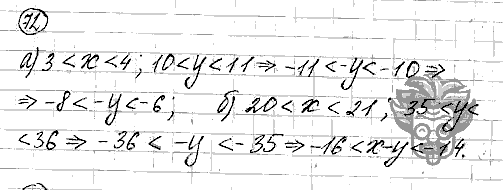 72
а) 3 < x < 4; 10 < y < 11 ⇒ -11 < -y < -10 ⇒
⇒ -8 < -y < -6; б) 20 < x < 21; 35 < y <
< 36 ⇒ -36 < -y < -35 ⇒ -16 < x-y < -14.